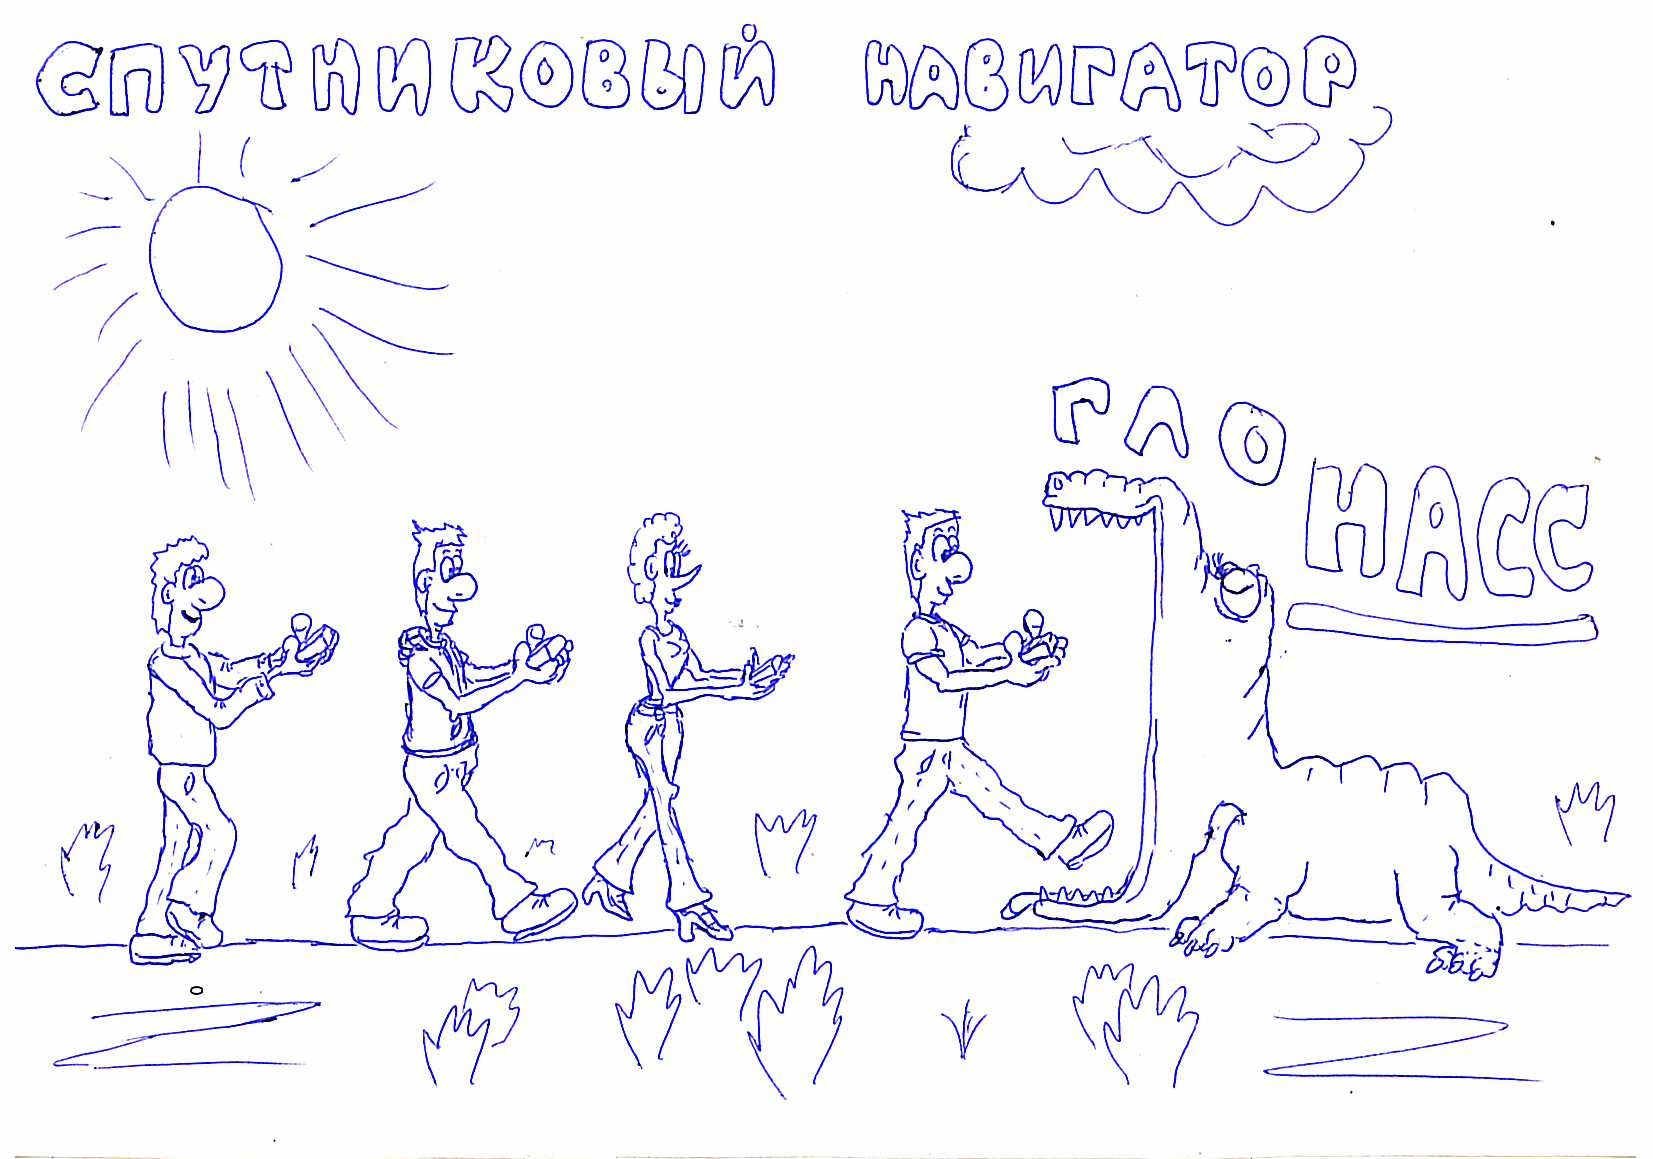 СПУТНИКОВЫЙ НАВИГАТОР
ГЛОНАСС